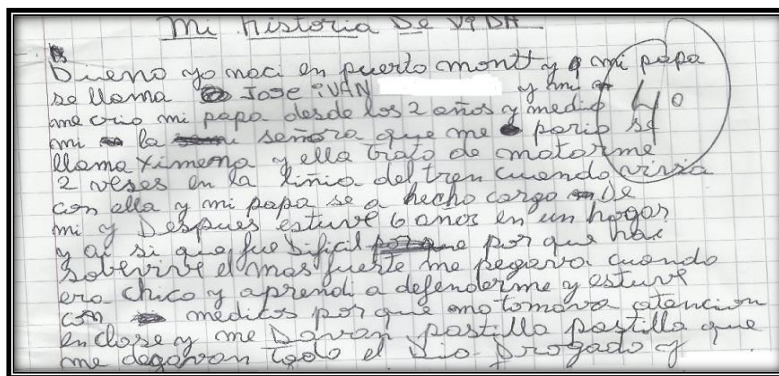 Mi historia De ViDA
Bueno yo naci en puerto montt y mi papa
se llama Jose iVAN y mi
me crio mi papa desde los 2 años y medio
4°
mi la señora que me pario se
llama Ximena y ella trato de matarme
2 veses en la liñia del tren cuando vivia
con ella y mi papa se a hecho cargo De
mi y Despues estuve 6 años en un hogar
y ai si que fue Dificil por que hai
sobevive el mas fuerte me pegava cuando
era chico y aprendi a defenderme y estuve
con medicos por que no tomava atencion
en clase y me Davan pastilla pastilla que
me degavan todo el Dia Drogado y